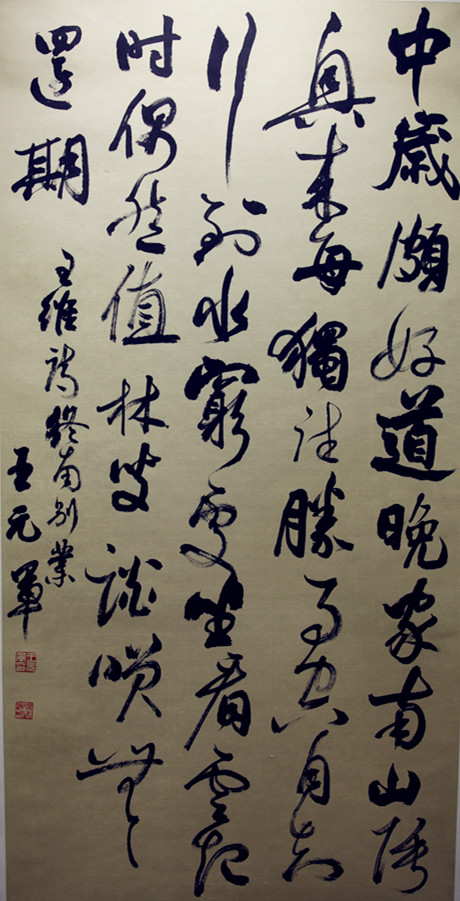 中歲頗好道晚家南山陲
興來每獨往勝事空自知
行到水窮處坐看雲起
时偶然值林叟談咲無
還期
王維詩終南別業
王元軍